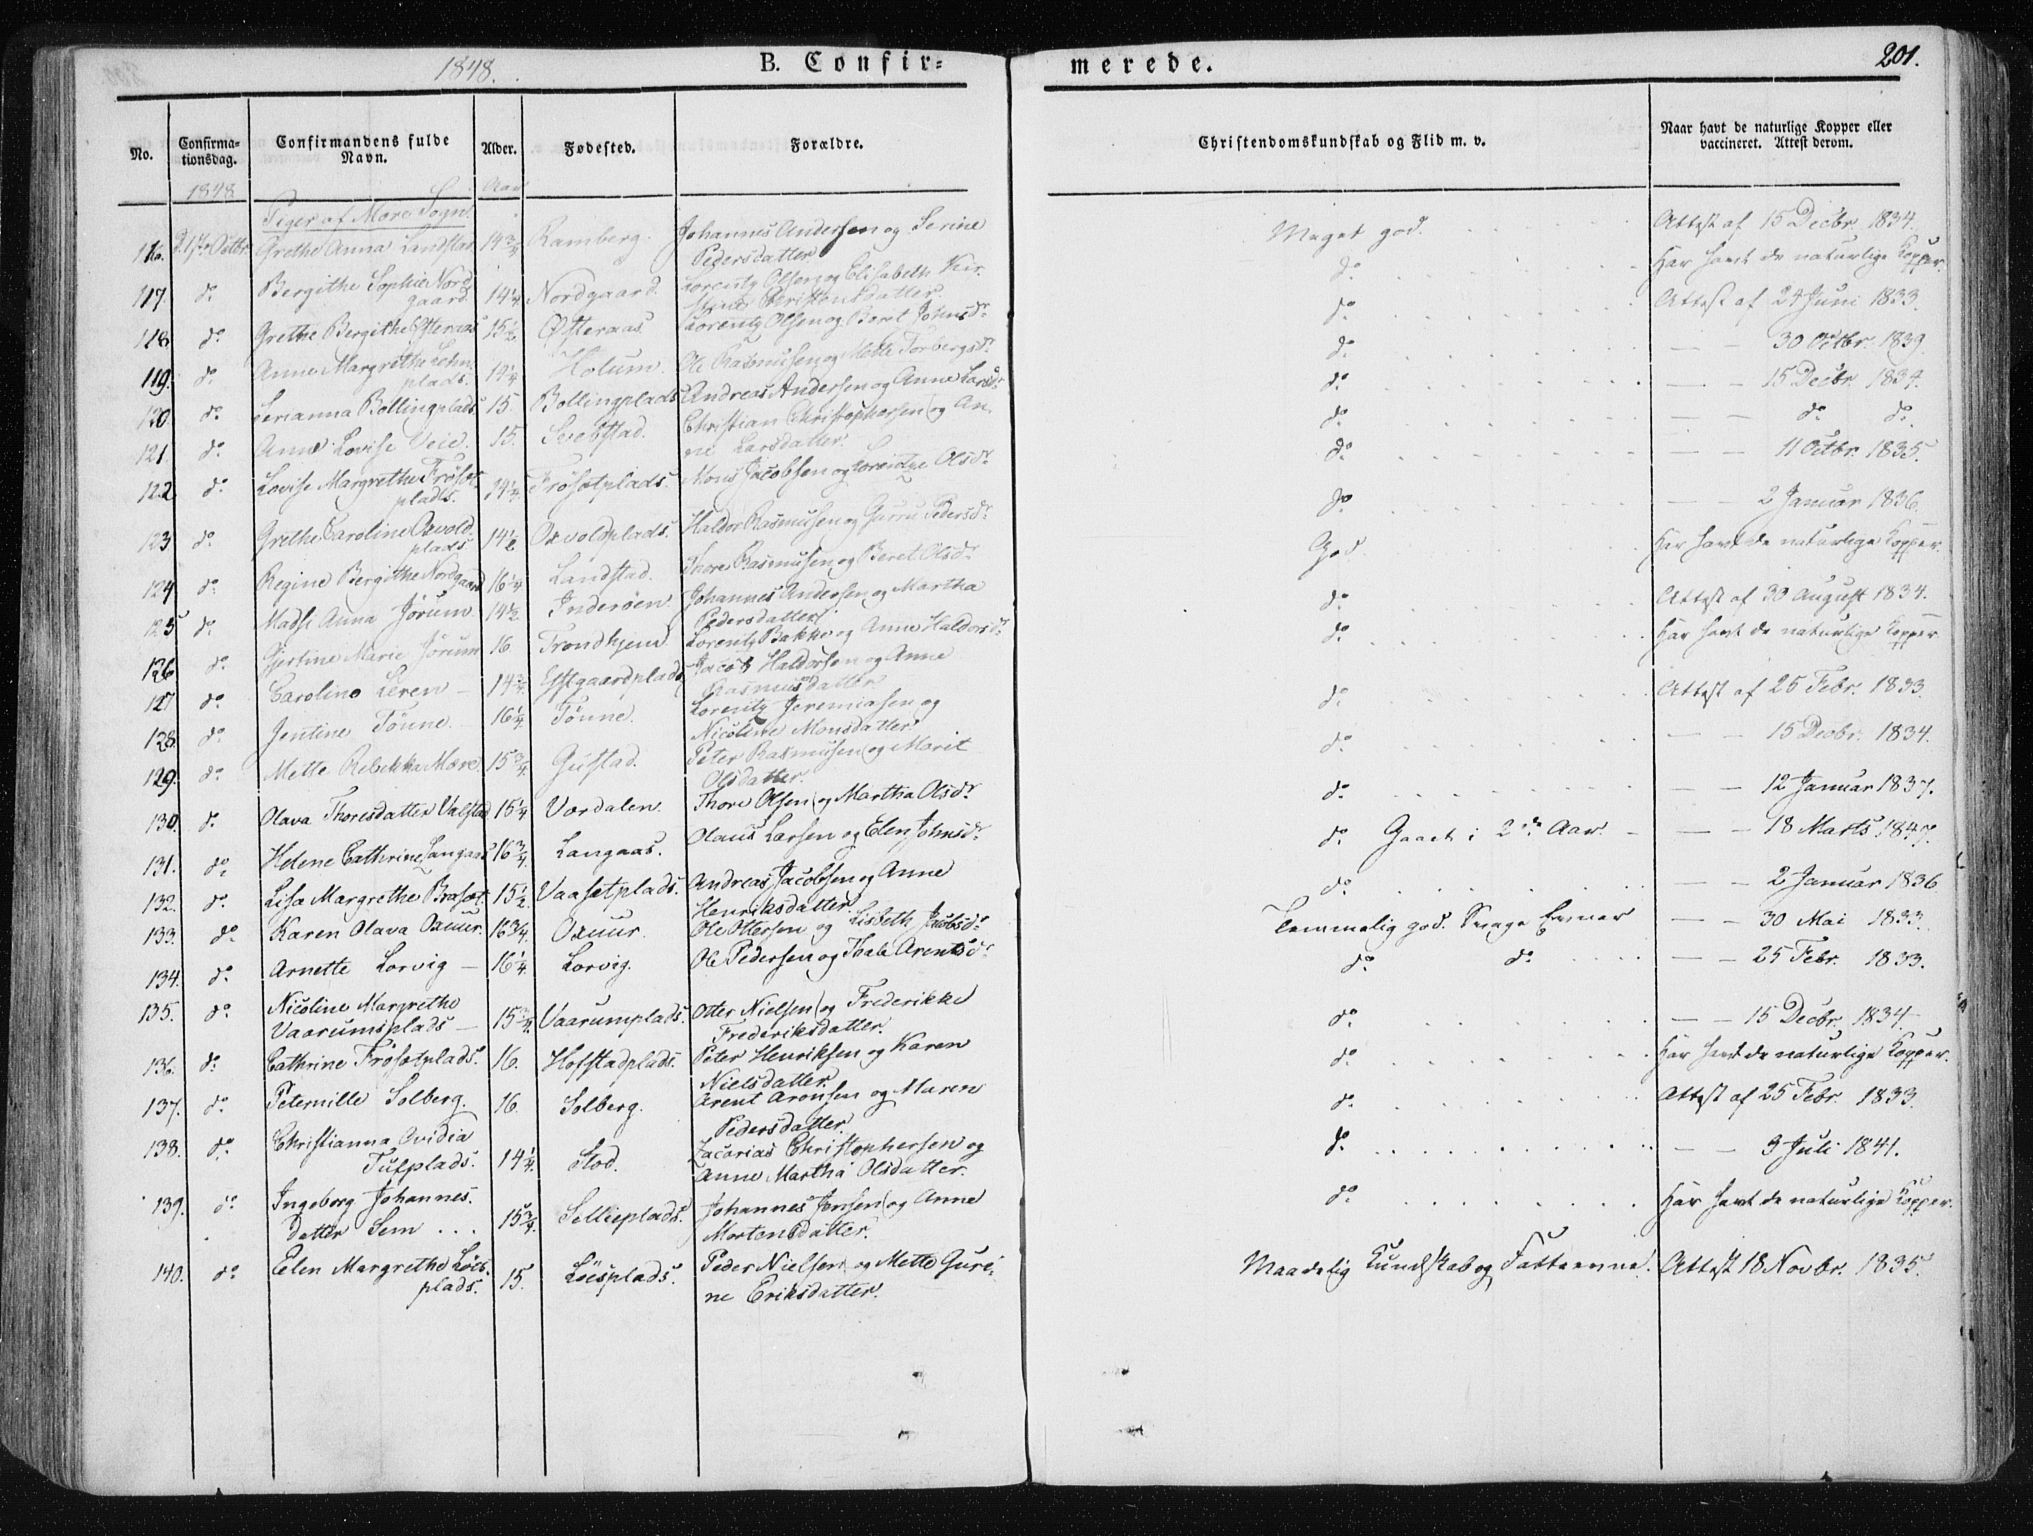 1848.
B. Confir=
merede.
201.
No.
Confirma-
tionsdag.
Confirmandens fulde
Navn.
Alder.
Fødested.
Forældre.
Christendomskundskab og Flid m. v.
Naar havt de naturlige Kopper eller
vaccineret. Attest derom.
1848
Aar
Piger af Mære Sogn.
116. D. 1ste Octbr. Grethe Anna Landstad 14 3/4 Ramberg. Johannes Andersen og Serine
Pedersdatter
Meget god. Attest af 15 Decbr. 1834.
117. do Bergithe Sophie Nord-
gaard. 14 1/4 Nordgaard. Lorentz Olsen og Elisabeth Kir-
stine Christensdatter.
do Har havt de naturlige Kopper.
118 do Grethe Bergithe Østeraas 15 1/2 Østeraas. Lorentz Olsen og Beret Johnsdr
do Attest af 24 Juni 1833.
119. do Anne Margrethe Lehn-
plads. 14 1/4 Holum. Ole Rasmusen og Mette Torbergsdr
do — — 30 Octbr. 1839.
120. do Serianna Bollingplads 15. Bollingplads Andreas Andersen og Anne Larsdr
do — — 15 Decbr. 1834.
121 do Anne Lovise Veie. 15. Christian Christophersen og An-
ne Larsdatter.
do — — do do
122 do Lovise Margrethe Frøset-
plads. 14 1/4 Frøsetplads. Mons Jacobsen og Lorentze Olsdr
do — — 11 Octbr. 1835.
123 do Grethe Caroline Oxvold-
plads 14 1/2 Oxvoldplads. Haldor Rasmusen og Gurru Pedersdr
do — — 2 Januar 1836.
124 do Regine Bergithe Nordgaard 16 1/4 Landstad. Thore Rasmusen og Beret Olsdr
God Har havt de naturlige Kopper.
125 do Madse Anna Jørum 14 1/2 Inderøen Johannes Andersen og Martha
Pedersdatter
do Attest af 30 August 1834.
126 do Gjertine Marie Jørum 16 Trondhjem Lorentz Bakke og Anne Haldorsdr
do Har havt de naturlige Kopper
127 do Caroline Leren — 14 3/4 Jacob Haldorsen og Anne
Rasmusdatter.
do Attest af 25 Febr. 1833.
128. do Jentine Tønne. 16 1/4 Tønne. Lorentz Jeremiasen og
Nicoline Monsdatter.
do — — 15 Decbr. 1834.
129. do Mette Rebekka Mære. 15 3/4 Gustad. Peter Rasmusen og Marit
Olsdatter.
do — — 12 Januar 1837.
130. do Olava Thoresdatter Valstad 15 1/4 Værdalen. Thore Olsen og Martha Olsdr
do Gaaet i 2det Aar. — — 18 Marts 1847.
131. do Helene Cathrine Langaas 16 3/4 Langaas. Olaus Larsen og Elen Johnsdr
132. do Lisa Margrethe Braset 15 1/2 Vaasetplads. Andreas Jacobsen og Anne
Henriksdatter.
do — — 2 Januar 1836
133. do Karen Olava Oxuur. 16 3/4 Oxuur. Ole Ottersen og Lisbeth Jacobsdr
Temmelig god. Svage Evner — — 30 Mai 1833.
134. do Arnette Lorvig — 16 1/4 Lorvig. Ole Pedersen og Arentsdr
do do — — 25 Febr. 1833.
135. do Nicoline Margrethe
Vaarumsplads — 15 3/4 Vaarumplads. Otter Nielsen og Frederikke
Frederiksdatter.
do — — 15 Decbr. 1834
136. do Cathrine Frøsetplads. 16. Hofstadplads. Peter Henriksen og Karen
Nielsdatter.
do Har havt de naturlige Kopper.
137. do Peternille Solberg. 16. Solberg. Arent Aronsen og Maren
Pedersdatter.
do Attest af 25 Febr. 1833.
138. do Christianna Ovidia
Tufplads. 14 1/4 Stod. Zacarias Christophersen og
Anne Martha Olsdatter.
do — — 9 Juli 1841.
139. do Ingeborg Johannes-
datter Sem 15 3/4 Sellieplads. Johannes Jensen og Anne
Mortensdatter.
do Har havt de naturlige Kopper.
140. do Elen Margrethe Løes-
plads. 15. Løesplads. Peder Nielsen og Mette Guri-
ne Eriksdatter.
Maadelig Kundskab og Fatteevne. Attest 18 Novbr. 1835.